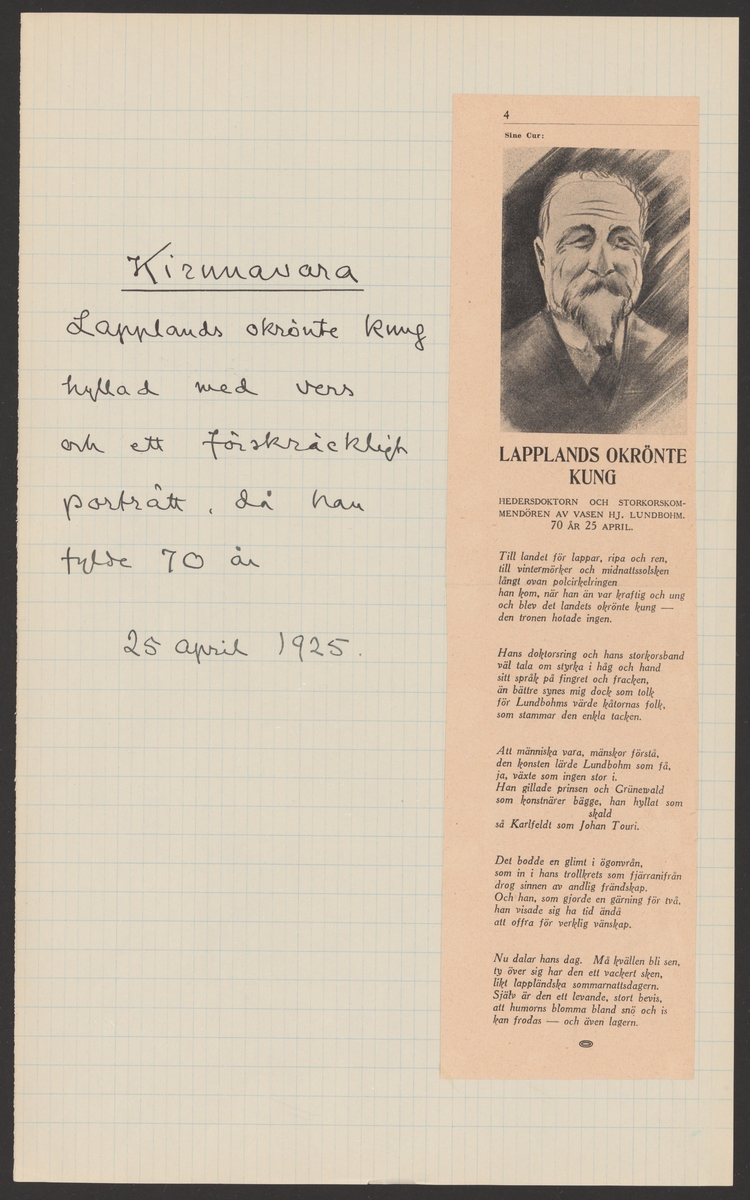 Kirunavara
Lapplands okrönte kung
hyllad med vers
och ett förskräckligt
porträtt, då han
fylde 70 år
25 april 1925.
4
Sine Cur:
LAPPLANDS OKRÖNTE
KUNG
HEDERSDOKTORN OCH STORKORSKOM-
MENDÖREN AV VASEN HJ. LUNDBOHM.
70 ÅR 25 APRIL.
Till landet för lappar, ripa och ren,
till vintermörker och midnattssolsken
långt ovan polcirkelringen
han kom, när han än var kraftig och ung
och blev det landets okrönte kung —
den tronen hotade ingen.
Hans doktorsring och hans storkorsband
väl tala om styrka i håg och hand
sitt språk på fingret och fracken,
än bättre synes mig dock som tolk
för Lundbohms värde kåtornas folk,
som stammar den enkla tacken.
Att människa vara, mänskor förstå,
den konsten lärde Lundbohm som få,
ja, växte som ingen stor i.
Han gillade prinsen och Grünewald
som konstnärer bägge, han hyllat som
skald
så Karlfeldt som Johan Touri.
Det bodde en glimt i ögonvrån,
som in i hans trollkrets som fjärranifrån
drog sinnen av andlig frändskap.
Och han, som gjorde en gärning för två,
han visade sig ha tid ändå
att offra för verklig vänskap.
Nu dalar hans dag. Må kvällen bli sen,
ty över sig har den ett vackert sken,
likt lappländska sommarnattsdagern.
Själv är den ett levande, stort bevis,
att humorns blomma bland snö och is
kan frodas — och även lagern.